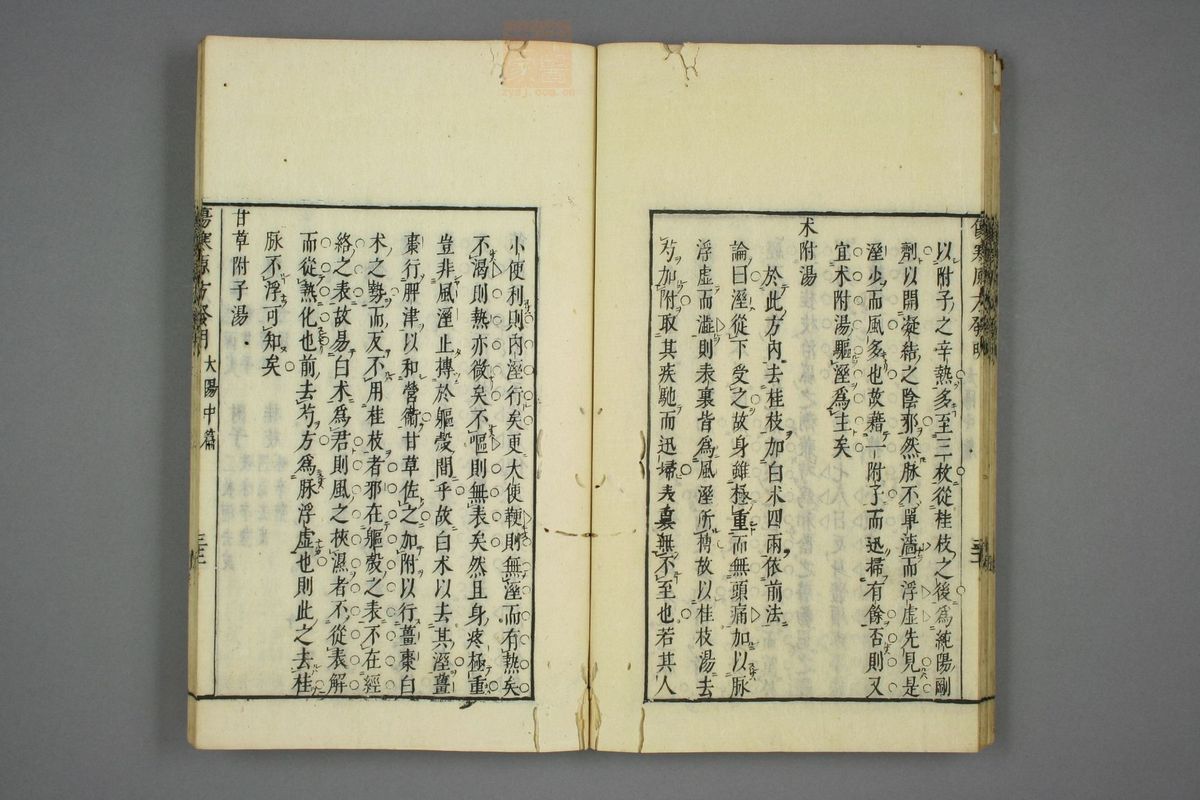 以附子之辛熱多至三枚從桂枝之後爲純陽剛
劑以開凝結之陰邪然脉不單濇而浮虛先見是
溼少而風多也故藉一附子而迅掃有餘否則又
宜朮附湯驅溼爲主矣
朮附湯
於此方內去桂枝加白朮四兩依前法
論曰溼從下受之故身雖極重而無頭痛加以脉
浮虛而濇則表裏皆爲風溼所搏故以桂枝湯去
芍加附取其疾馳而迅掃表裏無不至也若其人
小便利則內溼行矣更大便鞕則無溼而有熱矣
不渴則熱亦微矣不嘔則無表矣然且身疼極重
豈非風溼止搏於軀殼間乎故白朮以去其溼薑
棗行脾津以和營衞甘草佐之加附以行薑棗白
朮之勢而反不用桂枝者邪在軀殼之表不在經
絡之表故易白朮爲君則風之挾濕者不從表解
而從熱化也前去芍方爲脉浮虛也則此之去桂
脉不浮可知矣
甘草附子湯
傷寒源方發明 太陽中篇 三十